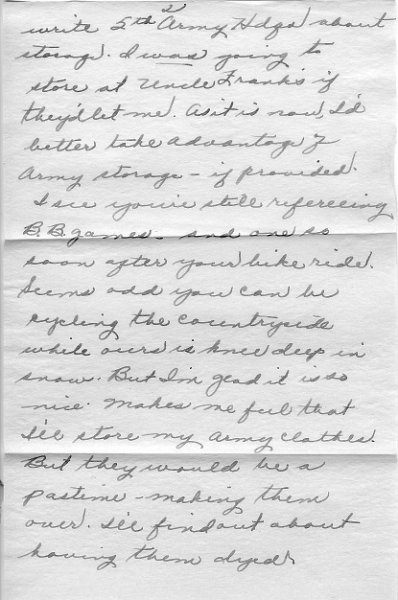 write 5th Army Hdqs about
storage. I was going to
store at Uncle Frank's if
they'd let me. As it is now, I'd
better take advantage of
Army storage - if provided.
I see you're still refereeing
B.B. games. and one so
soon after your bike ride.
Seems odd you can be
cycling the countryside
while ours is knee deep in
snow. But I'm glad it is so
nice. Makes me feel that
I'll store my army clothes.
But they would be a
pastime - making them
over. I'll find out about
having them dyed.